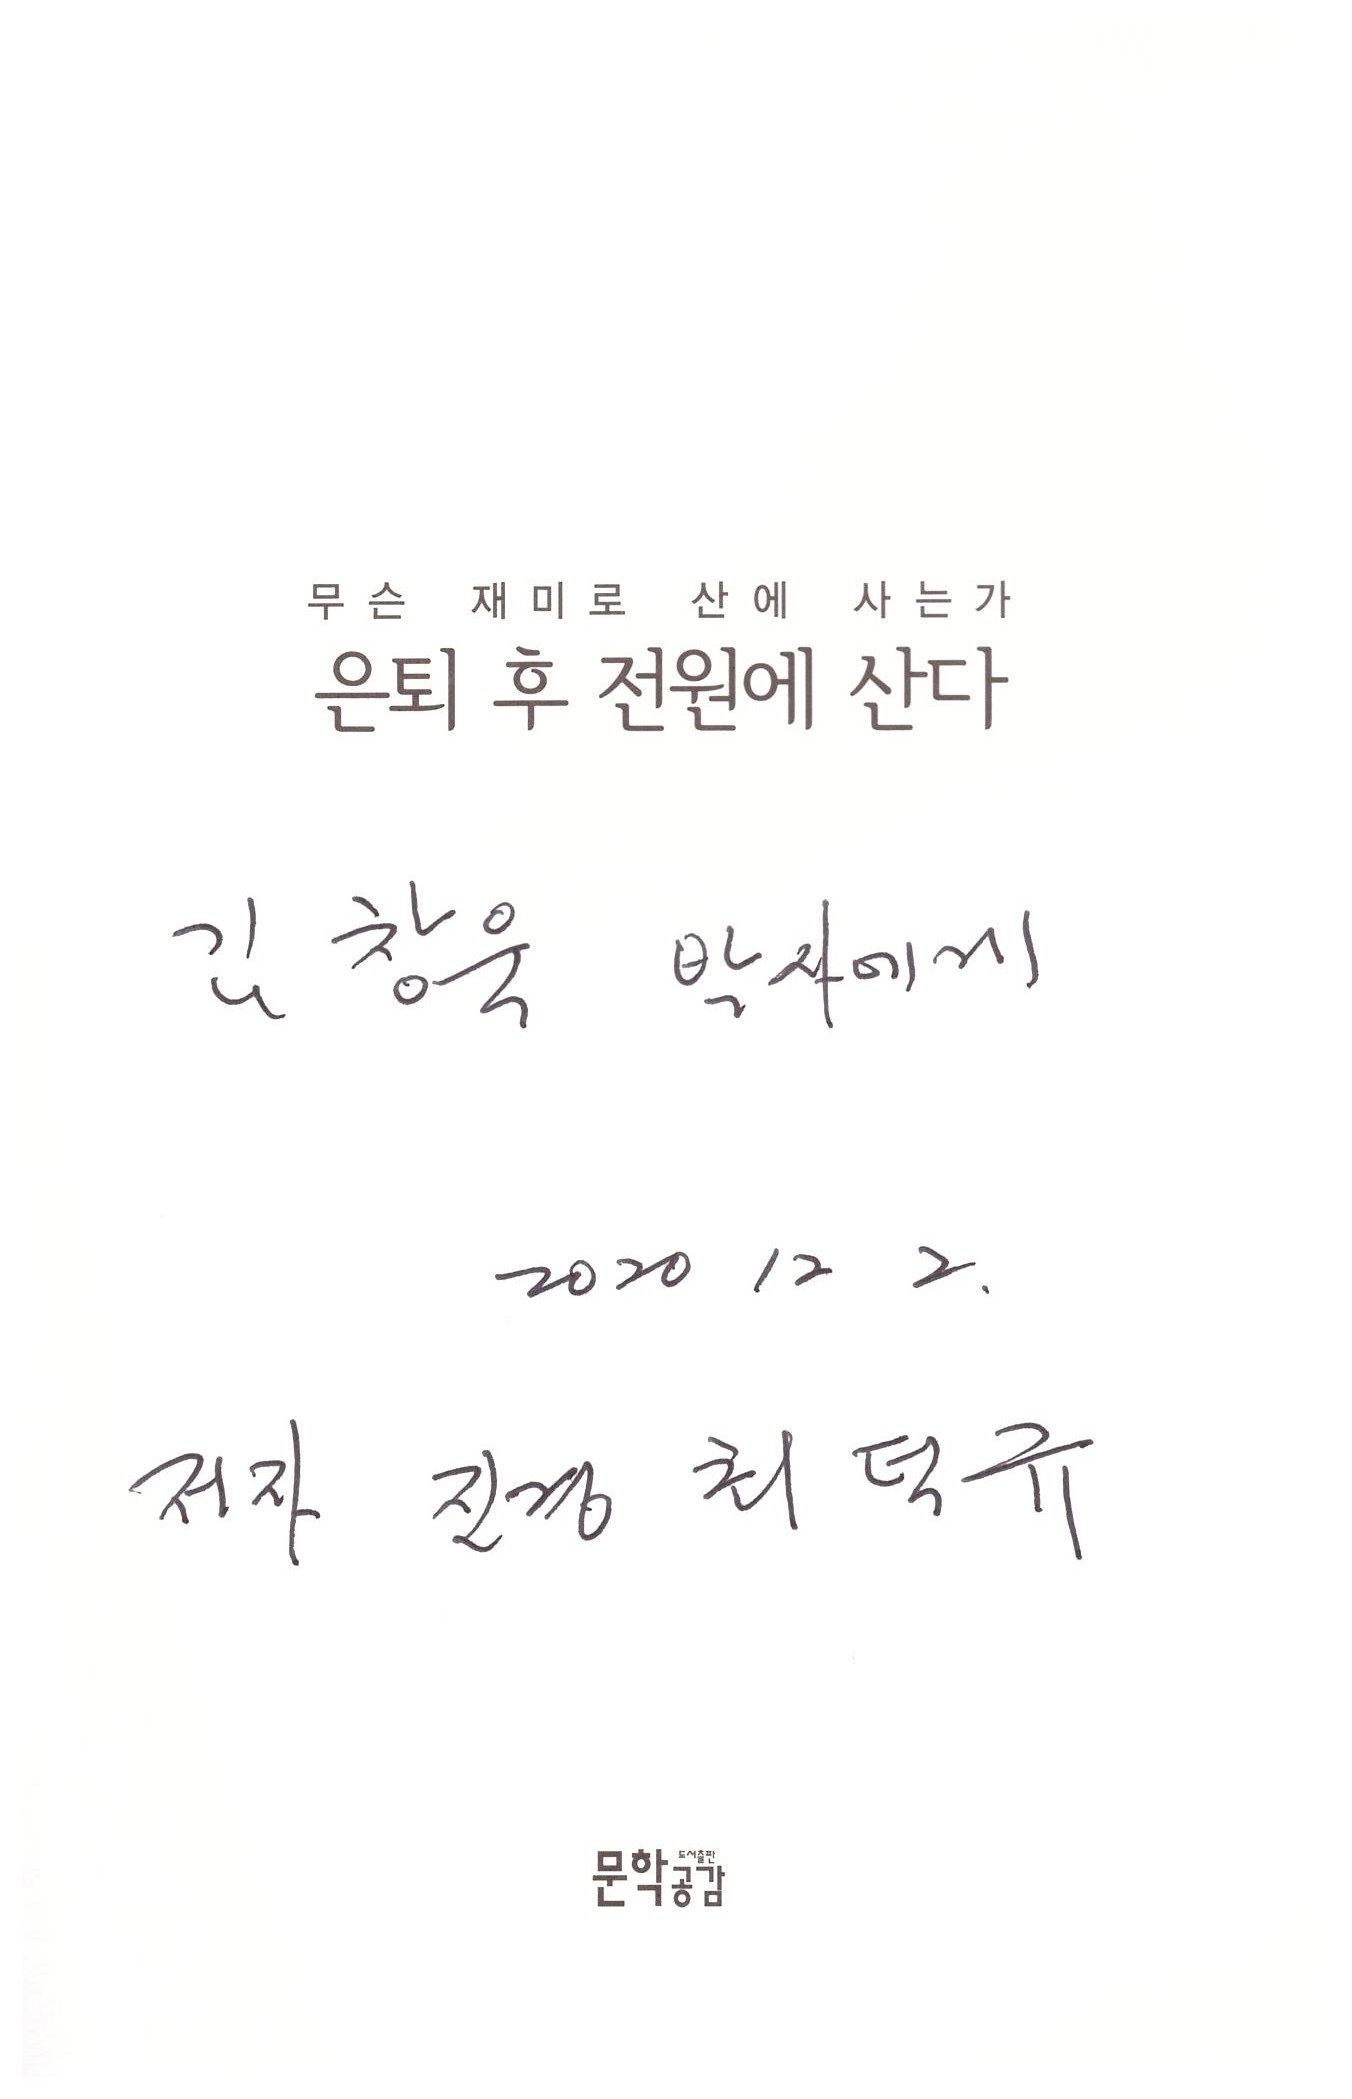 무슨 재미로 산에 사는가
은퇴 후 전원에 산다
김 창욱 박사에게
2020 12 2.
저자 진경 최 덕규
문학 도서출판 공감